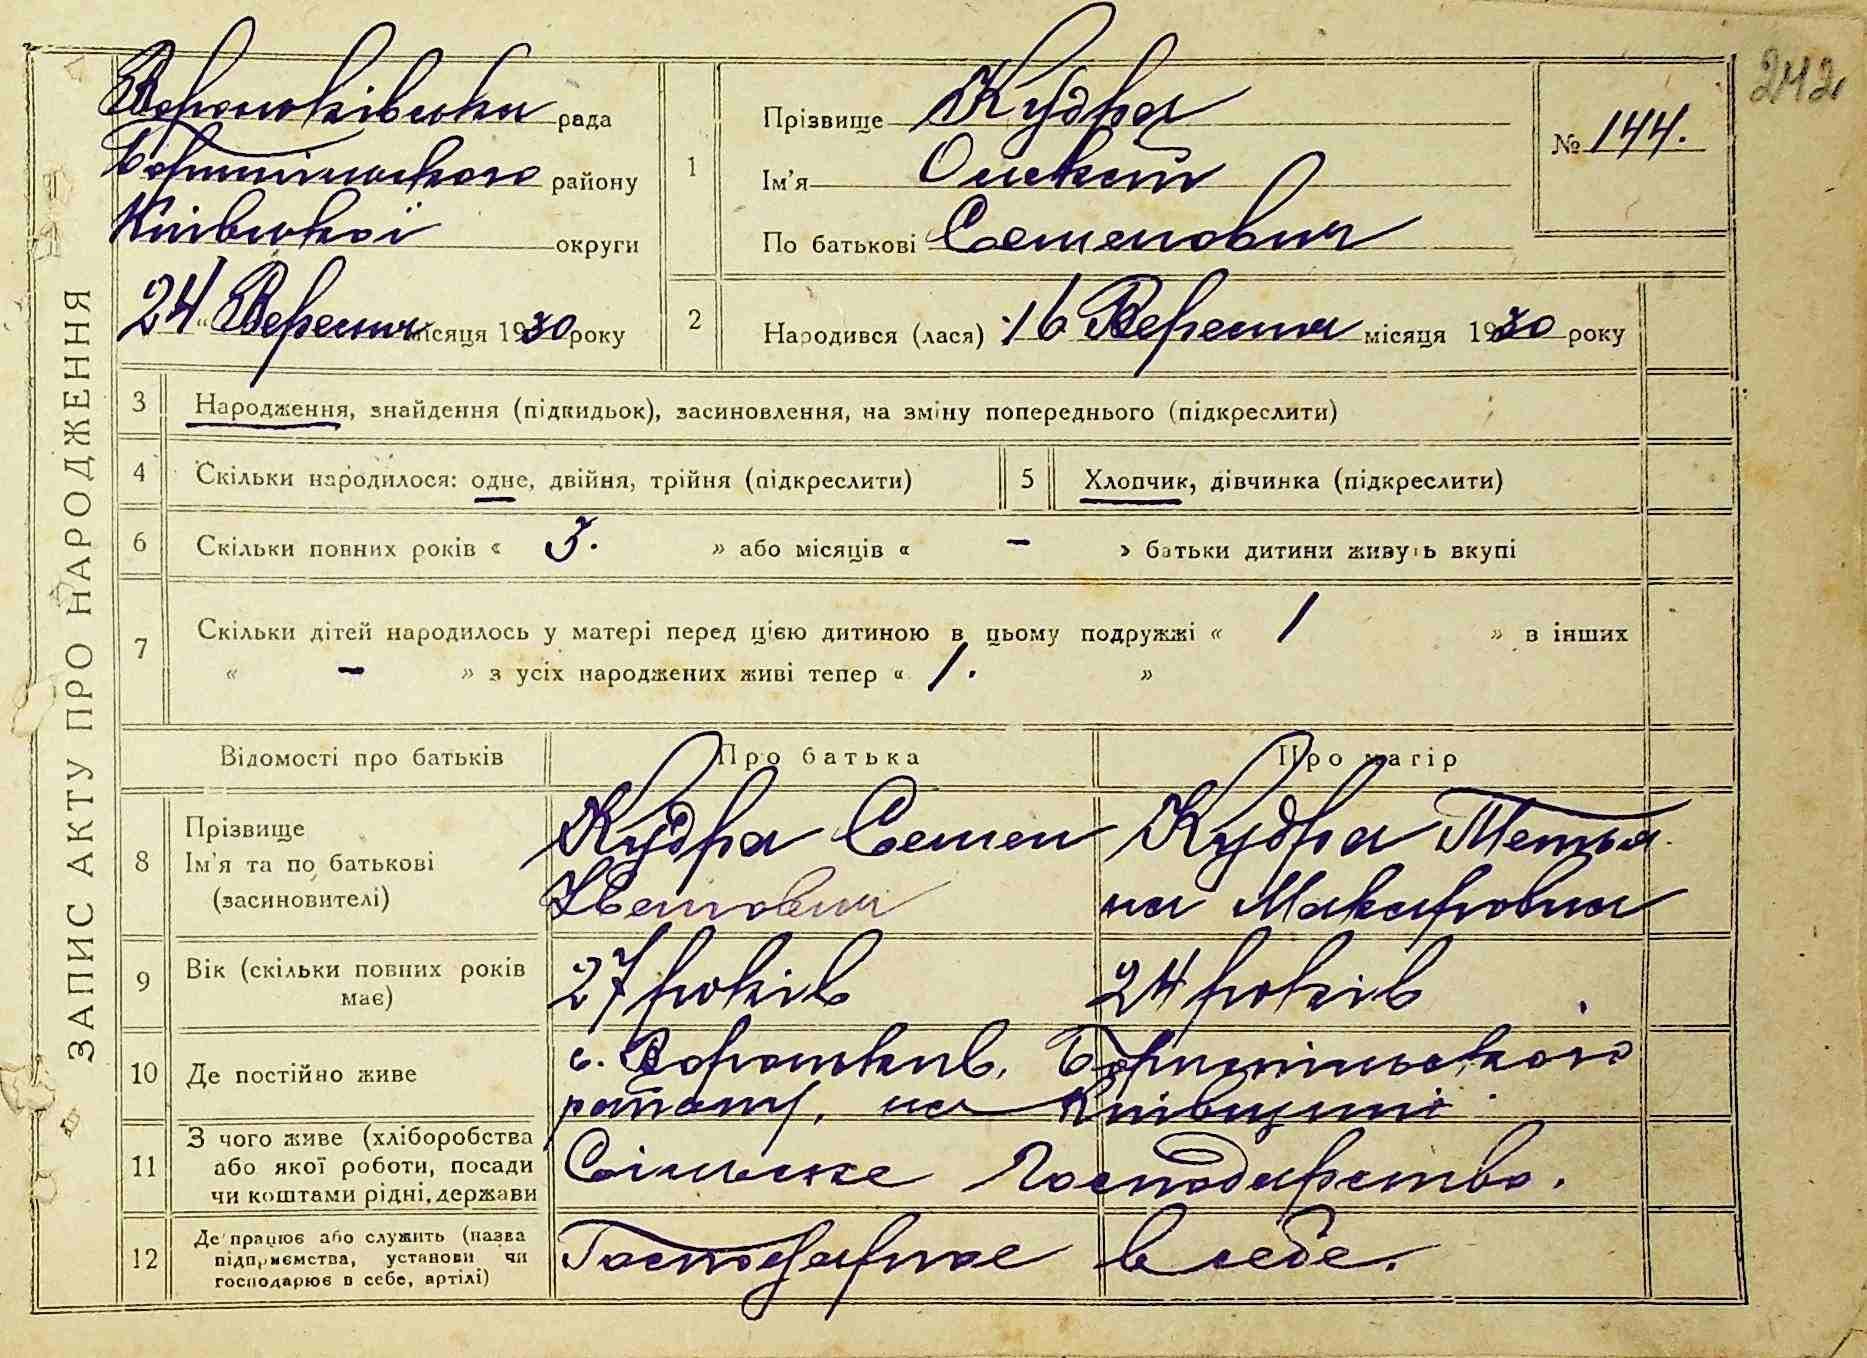 242
ЗАПИС АКТУ ПРО НАРОДЖЕННЯ
Вороньківська рада
Бориспільського району
Київської округи
24 „ Вересня місяця 1930 року
1 Прізвище Кудра
Ім'я Олексій
По батькові Семенович
№ 144.
2 Народився (лася) 16 Вересня місяця 1930 року
3 Народження, знайдення (підкидьок), засиновлення, на зміну попереднього (підкреслити)
4 Скільки народилося: одне, двійня, трійня (підкреслити)
5 Хлопчик, дівчинка (підкреслити)
6 Скільки повних років « 3. » або місяців « – » батьки дитини живуть вкупі
7 Скільки дітей народилось у матері перед цією дитиною в цьому подружжі « 1 » в інших
« – » з усіх народжених живі тепер « 1. »
Відомості про батьків Про батька Про матір
8 Прізвище
Ім'я та по батькові
(засиновителі)
Кудра Семен
Кудра Тетья
на Макаровна
9 Вік (скільки повних років
має)
27 років
24 років
10 Де постійно живе
с. Вороньків, Бориспільського
району, на Київщині
11 З чого живе (хліборобства
або якої роботи, посади
чи коштами рідні, держави
Сільське Господарство.
12 Де працює або служить (назва
підприємства, установи чи
господарює в себе, артілі)
Господарює в себе.